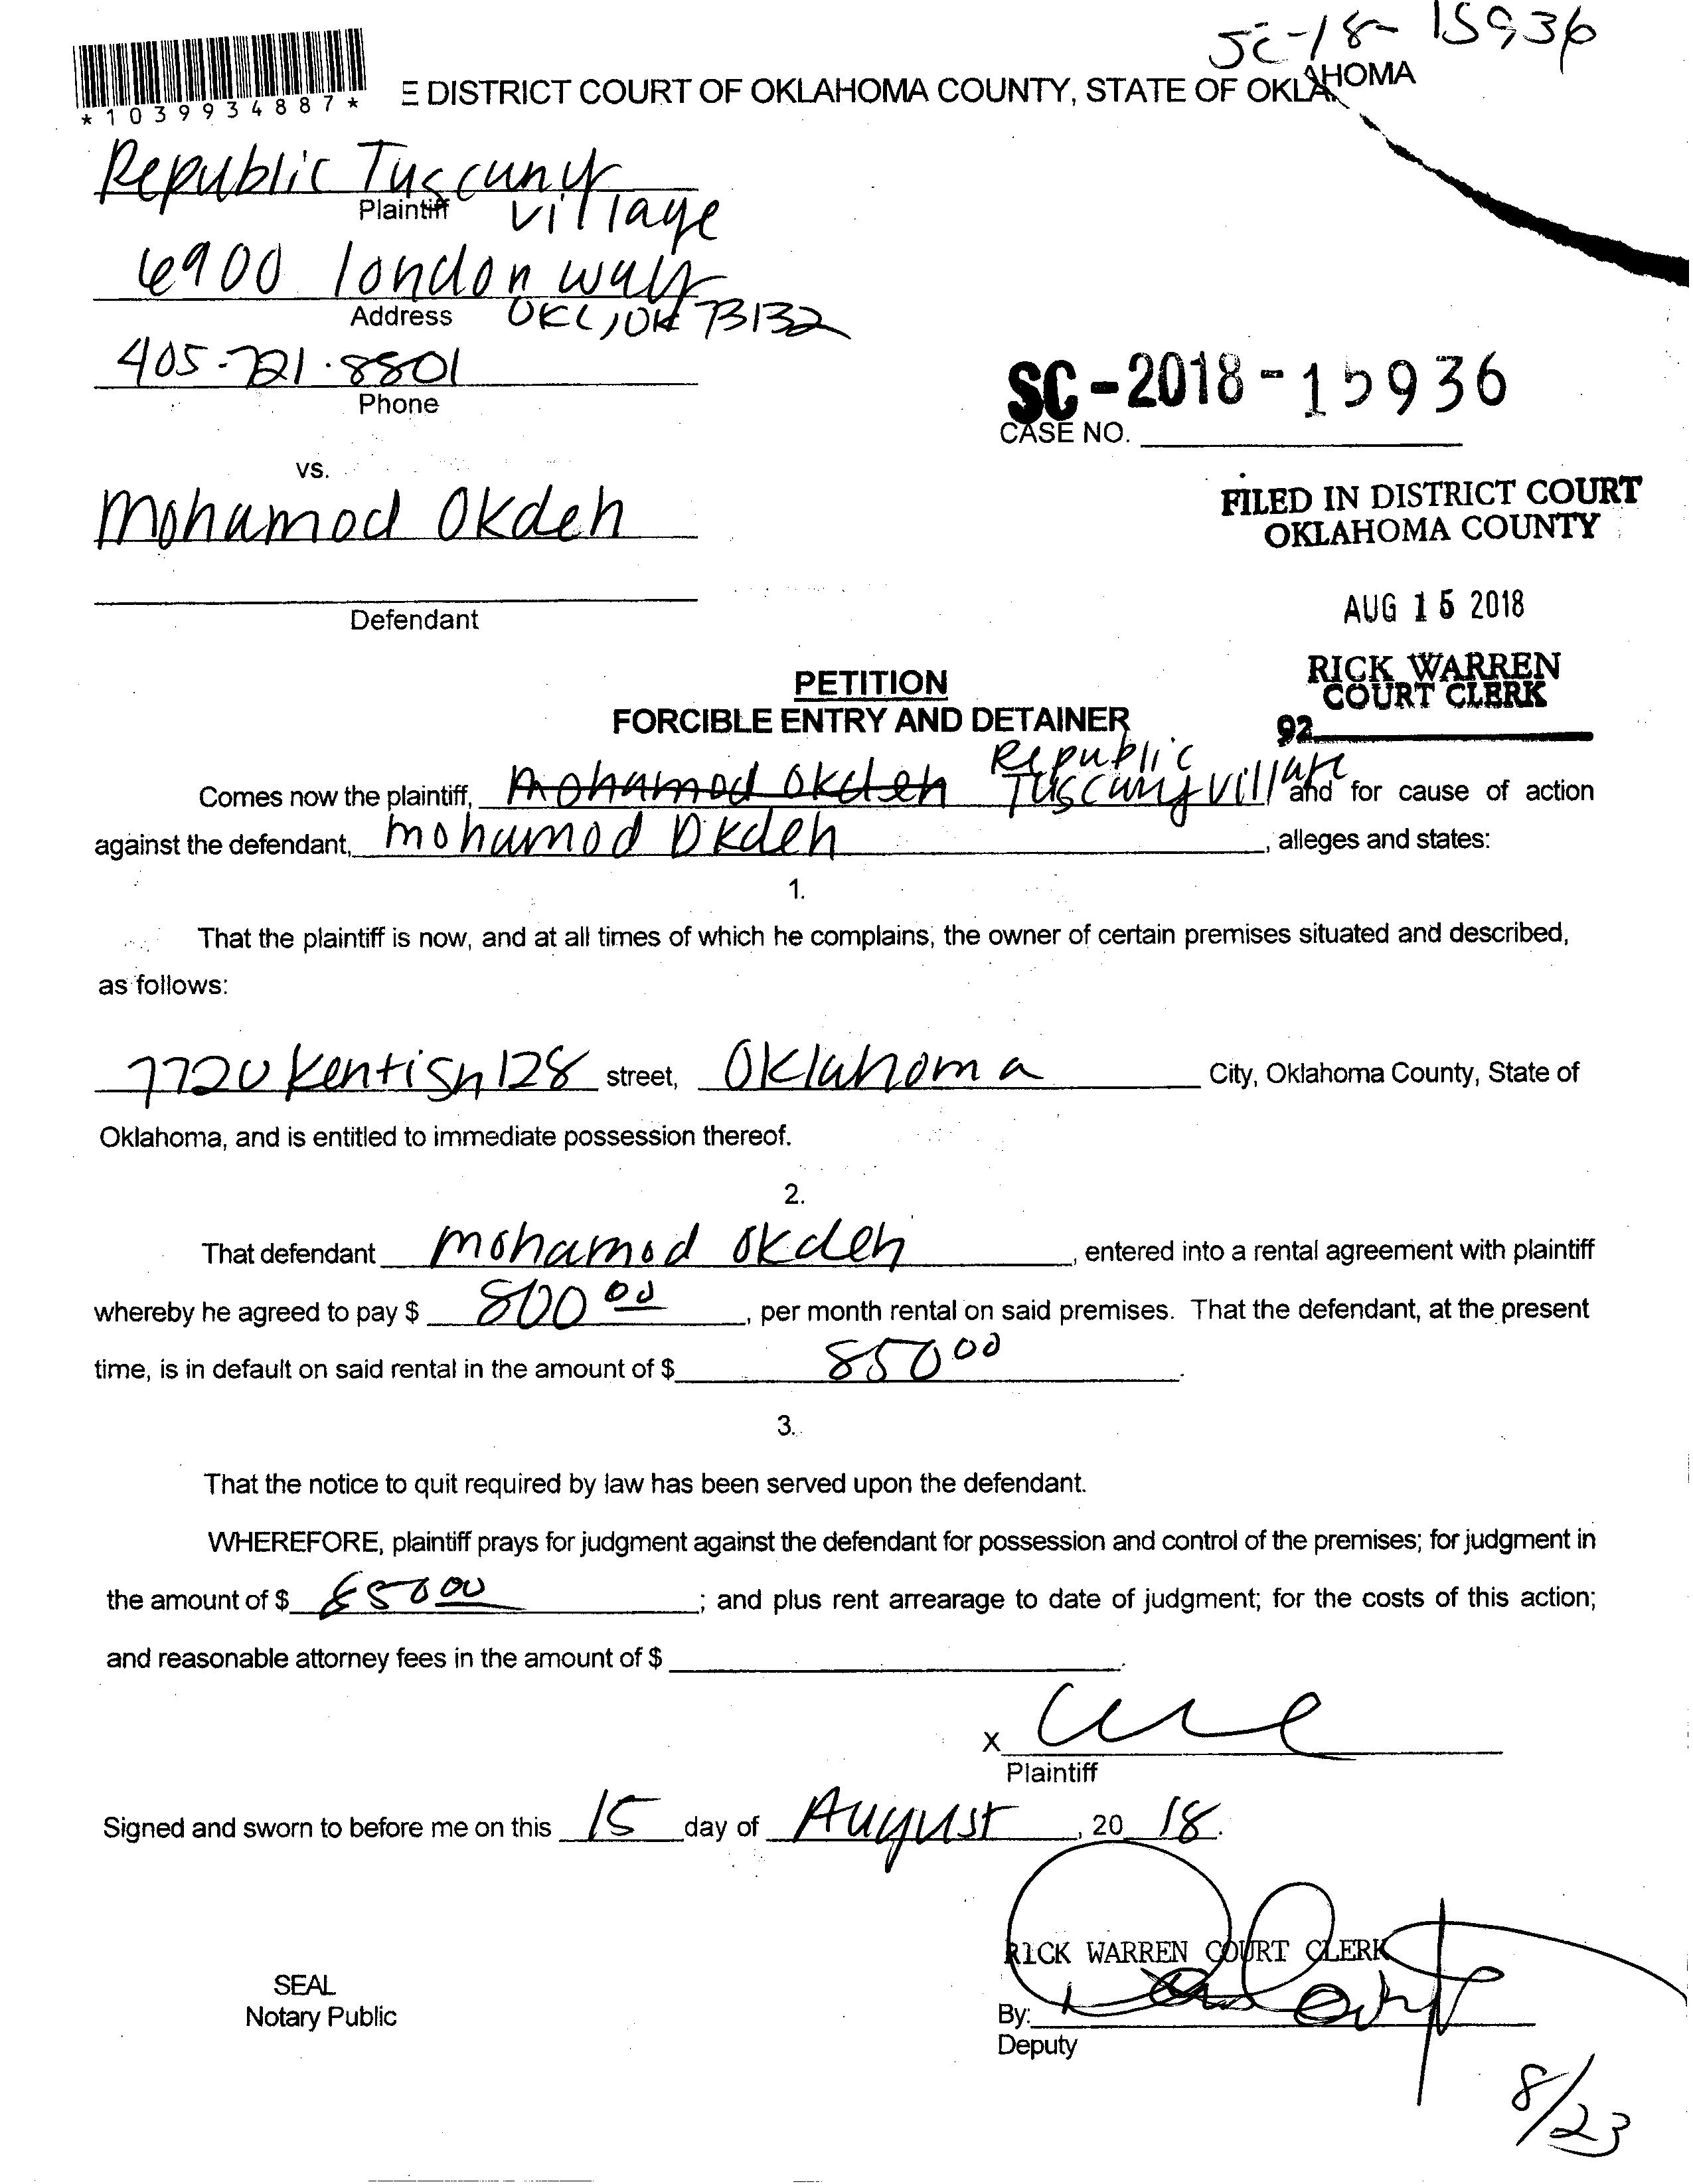 SC-18-15936
*1039934887*
E DISTRICT COURT OF OKLAHOMA COUNTY, STATE OF OKLAHOMA
Republic Tuscany
Plaintiff Village
6900 london way
Address OKC, OK 73132
405-721-8801
Phone
SC-2018-15936
CASE NO.
vs.
Mohamod Okdeh
FILED IN DISTRICT COURT
OKLAHOMA COUNTY
AUG 15 2018
Defendant
RICK WARREN
COURT CLERK
92
PETITION
FORCIBLE ENTRY AND DETAINER
Republic
Comes now the plaintiff, Mohamod Okdeh Tuscany Village and for cause of action
against the defendant, Mohamod Okdeh, alleges and states:
1.
That the plaintiff is now, and at all times of which he complains, the owner of certain premises situated and described,
as follows:
7720 Kentish 128 street, Oklahoma City, Oklahoma County, State of
Oklahoma, and is entitled to immediate possession thereof.
2.
That defendant Mohamod Okdeh, entered into a rental agreement with plaintiff
whereby he agreed to pay $ 800 00, per month rental on said premises. That the defendant, at the present
time, is in default on said rental in the amount of $ 850 00.
3.
That the notice to quit required by law has been served upon the defendant.
WHEREFORE, plaintiff prays for judgment against the defendant for possession and control of the premises; for judgment in
the amount of $ 850 00; and plus rent arrearage to date of judgment; for the costs of this action;
and reasonable attorney fees in the amount of $
X
Plaintiff
Signed and sworn to before me on this 15 day of August, 20 18.
RICK WARREN COURT CLERK
SEAL
Notary Public
By:
Deputy
8/23